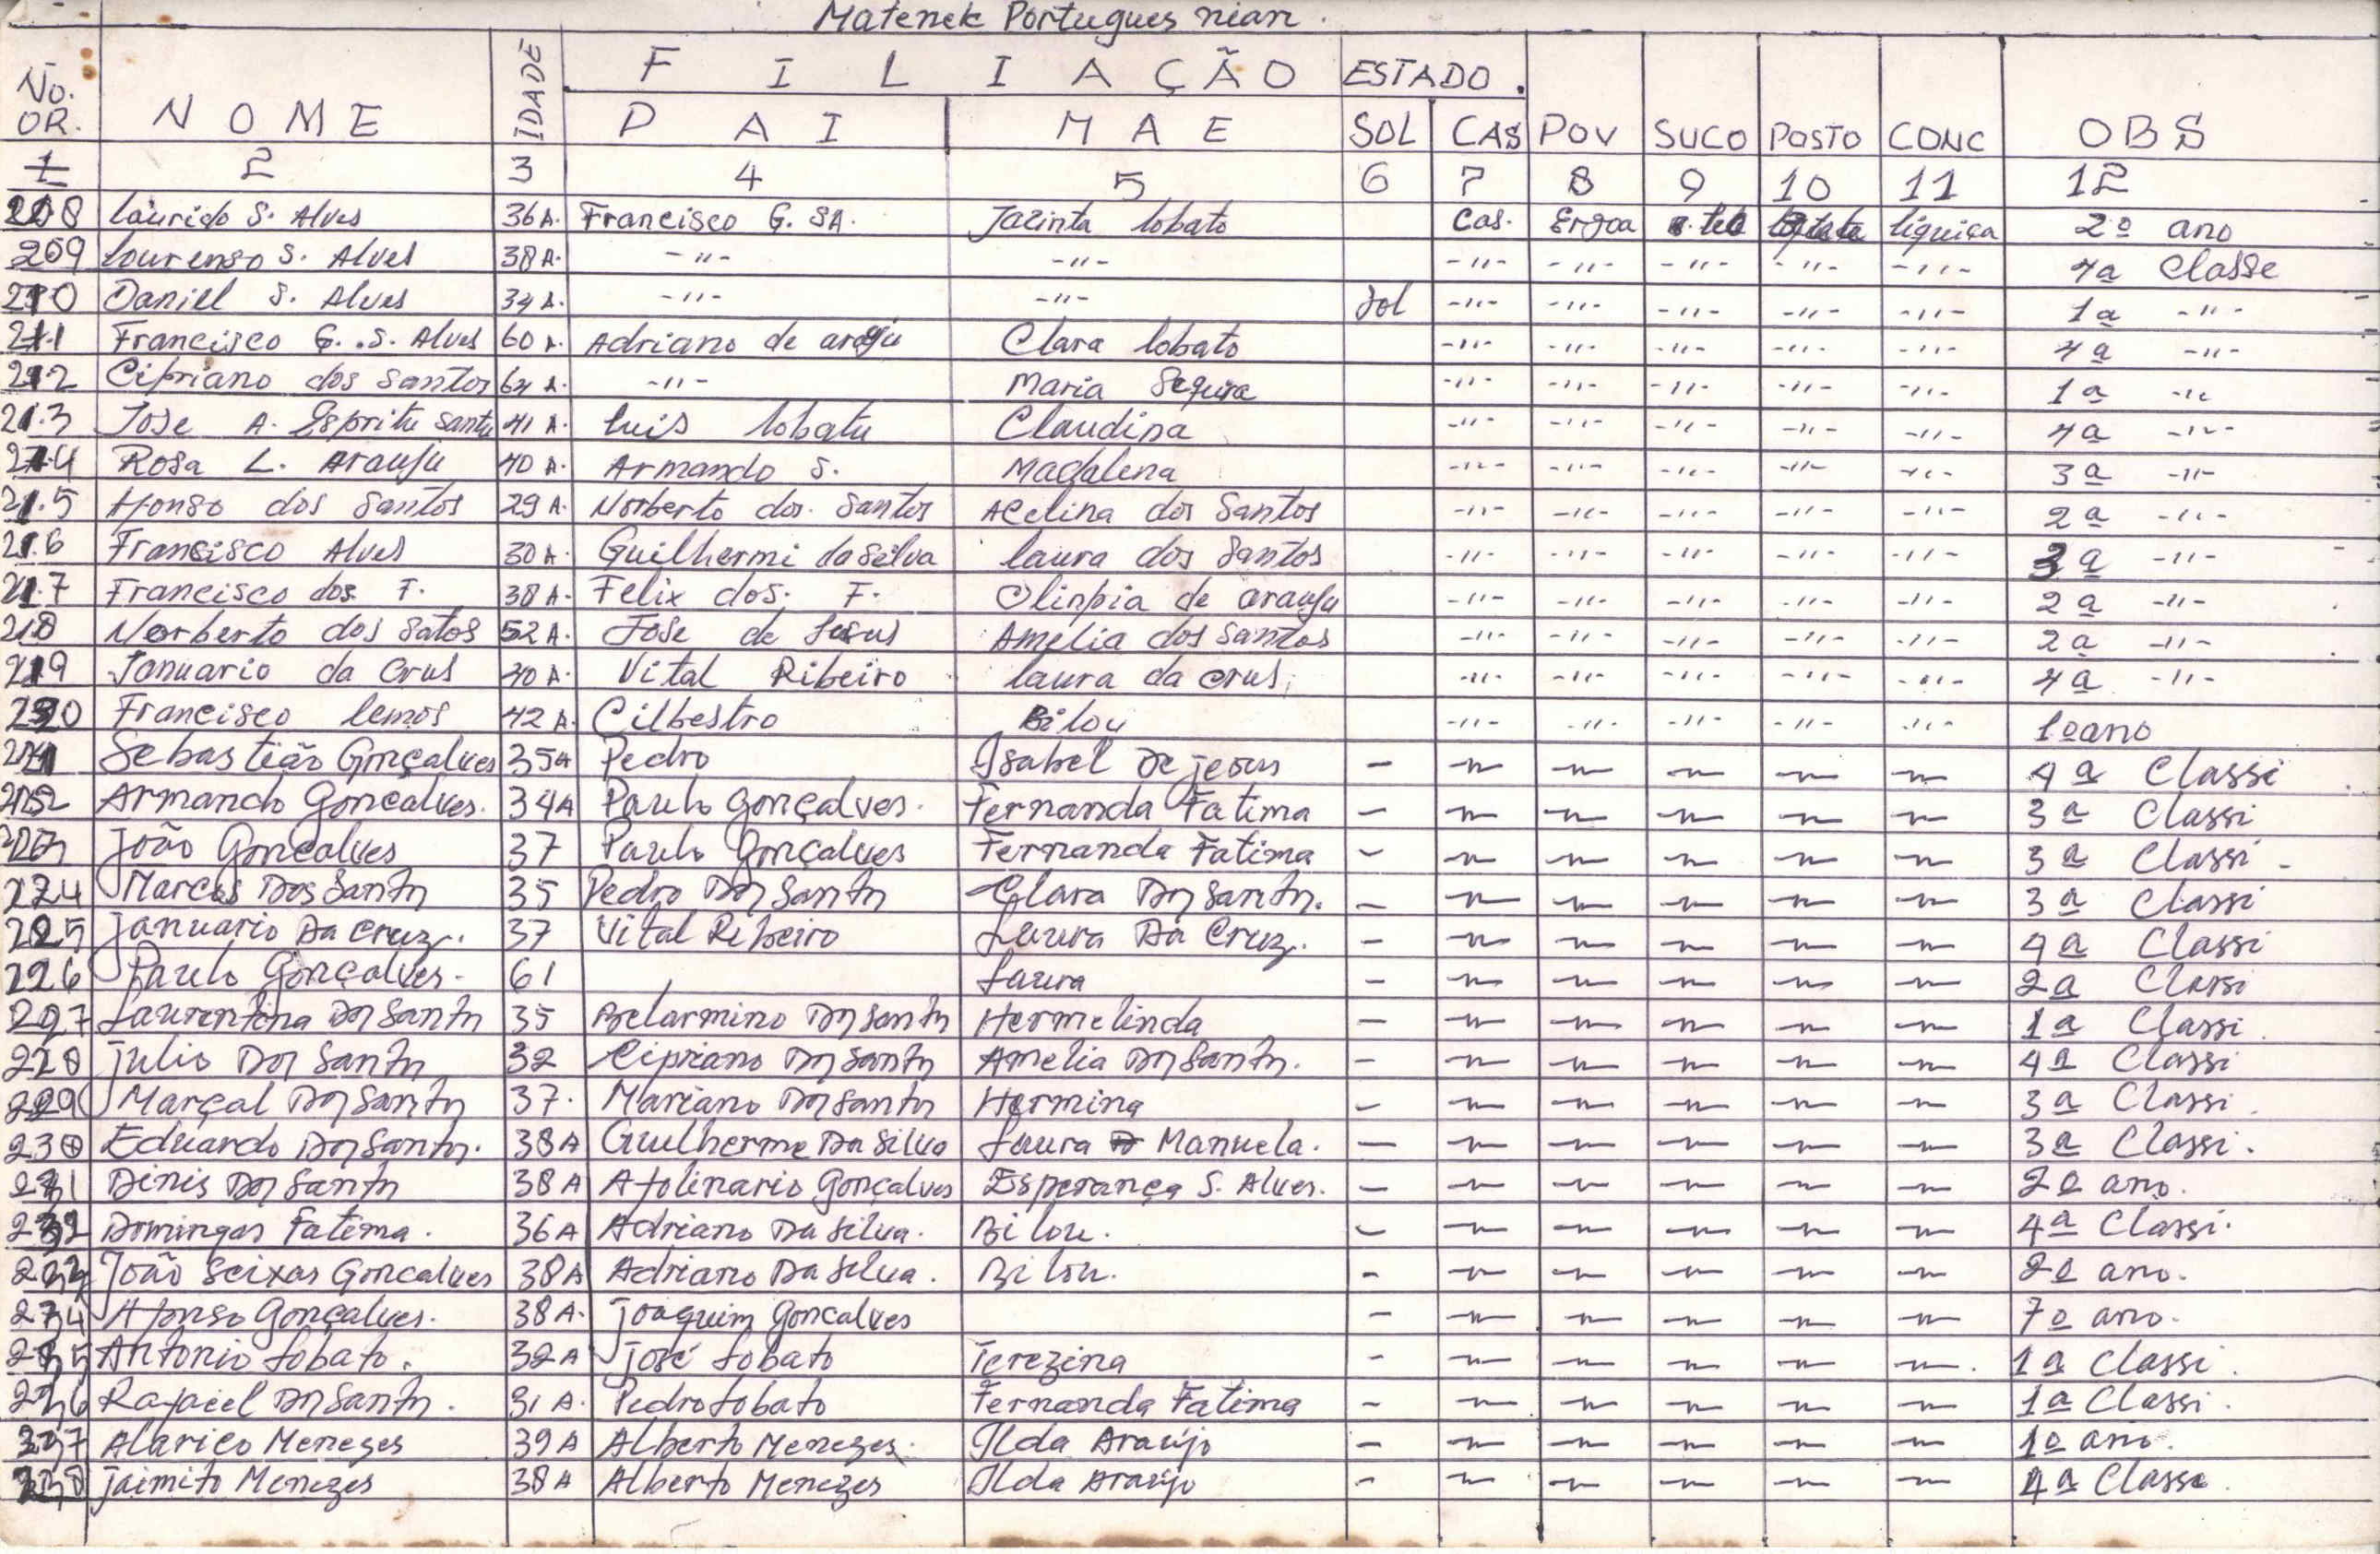 Matenek Portugues nian.
No. OR. NOME IDADE FILIAÇÃO ESTADO. POV SUCO POSTO CONC OBS
PAI MAE SOL CAS
1 2 3 4 5 6 7 8 9 10 11 12
208 laurido S. Alves 36A. Francisco G. SA. Jacinta lobato Cas. Ergoa liquiça 2º ano
209 lourenso S. Alves 38A. -"- -"- -"- -"- -"- -"- -"- 4a Classe
210 Daniel S. Alves 34A. -"- -"- Sol -"- -"- -"- -"- -"- 1a -"-
211 Francisco G. .S. Alves 60A. Adriano de Clara lobato -"- -"- -"- -"- -"- 4a -"-
212 Cipriano dos Santos 64A. -"- Maria -"- -"- -"- -"- -"- 1a -"-
21.3 Jose A. Espritu Santu 41A. luis lobatu Claudina -"- -"- -"- -"- -"- 4a -"-
214 Rosa L. Arauju 40A. Armando S. Madalena -"- -"- -"- -"- -"- 3a -"-
21.5 Afonso dos Santos 29A. Norberto dos. Santos Acelina dos Santos -"- -"- -"- -"- -"- 2a -"-
21.6 Francisco Alves 30A. Guilhermi da Silva laura dos Santos -"- -"- -"- -"- -"- 3a -"-
21.7 Francisco dos. F. 38A. Felix dos. F. Olinpia de arauju -"- -"- -"- -"- -"- 2a -"-
218 Norberto dos Satos 52A. Jose de Jesus Amelia dos Santos -"- -"- -"- -"- -"- 2a -"-
219 Januario da Crus 40A. Vital Ribeiro laura da crus, -"- -"- -"- -"- -"- 4a -"-
220 Francisco lemos 42A. Cilbestro Bilou -"- -"- -"- -"- -"- 1º ano
221 Sebastião Gonçalves 35A Pedro Isabel De jesus - -"- -"- -"- -"- -"- 4a Classi
222 Armando Goncalves. 34A Paulo Gonçalves. Fernanda Fatima - -"- -"- -"- -"- -"- 3a Classi
223 João Goncalves 37 Paulo Gonçalves Fernanda Fatima - -"- -"- -"- -"- -"- 3a Classi -
224 Marcos Dos Santos 35 Pedro Dos Santos Clara Dos Santos. - -"- -"- -"- -"- -"- 3a Classi
225 januario Da Cruz. 37 Vital Ribeiro Laura Da Cruz. - -"- -"- -"- -"- -"- 4a Classi
226 Paulo Gonçalves. 61 Laura - -"- -"- -"- -"- -"- 2a Classi
227 Laurentina Dos Santos 35 Belarmino Dos Santos Hermelinda - -"- -"- -"- -"- -"- 1a Classi.
228 julio Dos Santos 32 Cipriano Dos Santos Amelia Dos Santos. - -"- -"- -"- -"- -"- 4a Classi
229 Marçal Dos Santos 37. Mariano Dos Santos Hermina - -"- -"- -"- -"- -"- 3a Classi.
230 Eduardo Dos Santos. 38A Guilherme Da Silva Laura Manuela. - -"- -"- -"- -"- -"- 3a Classi.
231 Dinis Dos Santos 38A Apolinario Gonçalves Esperança S. Alves. - -"- -"- -"- -"- -"- 2º ano.
232 Domingas Fatima. 36A Adriano Da Silva. Bilou. - -"- -"- -"- -"- -"- 4a Classi.
233 João Seixas Goncalves 38A Adriano Da Silva. Bilou. - -"- -"- -"- -"- -"- 2º ano.
234 Afonso Gonçalves. 38A. joaquim Goncalves - -"- -"- -"- -"- -"- 7º ano.
235 Antonio Lobato. 32A José Lobato Terezina - -"- -"- -"- -"- -"- 1a Classi.
236 Rafaiel Dos Santos. 31A. Pedro Lobato Fernanda Fatima - -"- -"- -"- -"- -"- 1a Classi.
237 Alarico Menezes 39A Alberto Menezes. Ilda Araújo - -"- -"- -"- -"- -"- 1º ano.
238 jaimito Menezes 38A Alberto Menezes Ilda Araújo - -"- -"- -"- -"- -"- 4a Classe.